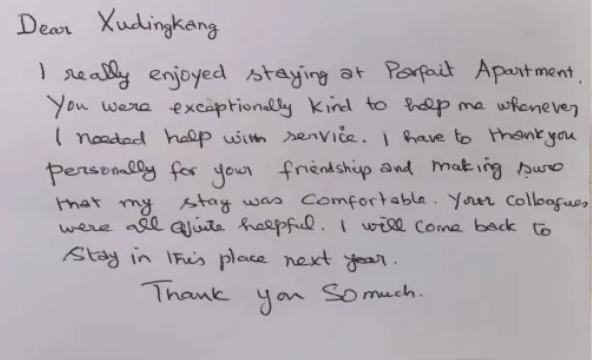 Dear Xudingkang
I really enjoyed staying at Parfait Apartment.
You were exceptionally kind to help me whenever
I needed help with service. I have to thank you
personally for your friendship and making sure
that my stay was comfortable. Your colleagues
were all quite helpful. I will come back to
stay in this place next year.
Thank you so much.